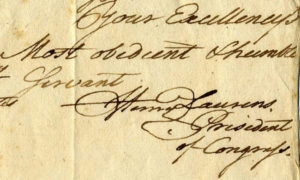 Your Excellency's
Most obedient & humble
Servant
Henry Laurens.
President
of Congress.